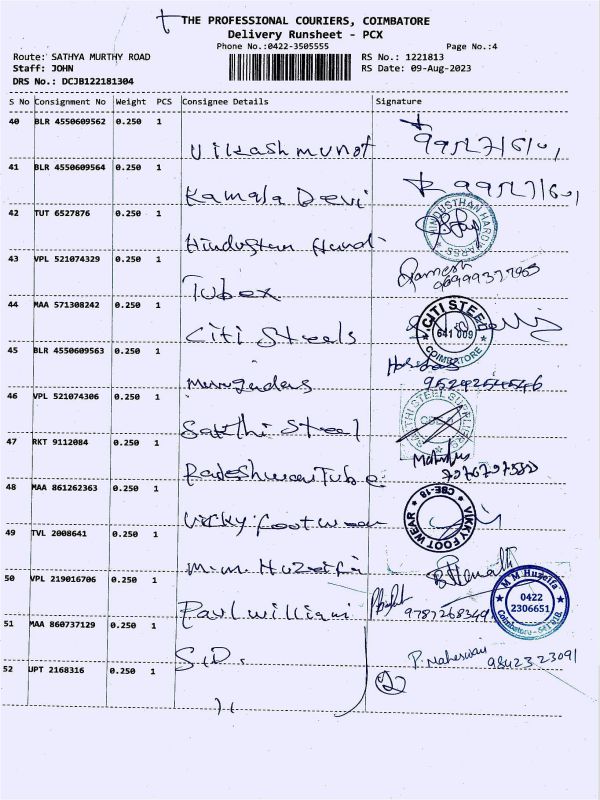 THE PROFESSIONAL COURIERS, COIMBATORE
Delivery Runsheet - PCX
Phone No.:0422-3505555 Page No.:4
Route: SATHYA MURTHY ROAD RS No.: 1221813
Staff: JOHN RS Date: 09-Aug-2023
DRS No.: DCJB122181304
S No Consignment No Weight PCS Consignee Details Signature
40 BLR 4550609562 0.250 1
41 BLR 4550609564 0.250 1
Kamala Devi
42 TUT 6527876 0.250 1
HINDUSTHAN HARDWARES
Hindustan Hard
43 VPL 521074329 0.250 1
Ramesh
Tubex
44 MAA 571308242 0.250 1
CITI STEEL
641 009
COIMBATORE
Citi Steels
45 BLR 4550609563 0.250 1
9529254546
46 VPL 521074306 0.250 1
SAKTHI STEEL SUPPLIERS
Sakthi Steel
47 RKT 9112084 0.250 1
48 MAA 861262363 0.250 1
CBE-18
VIKKY FOOT WEAR
Vicky Foot Wear
49 TVL 2008641 0.250 1
M.M. Huzeifa
50 VPL 219016706 0.250 1
M M Huzeifa
0422
2306651
Coimbatore - 641 018
Paul William
9787268349
51 MAA 860737129 0.250 1
S.D.
P. Maheswari 9842323091
52 UPT 2168316 0.250 1